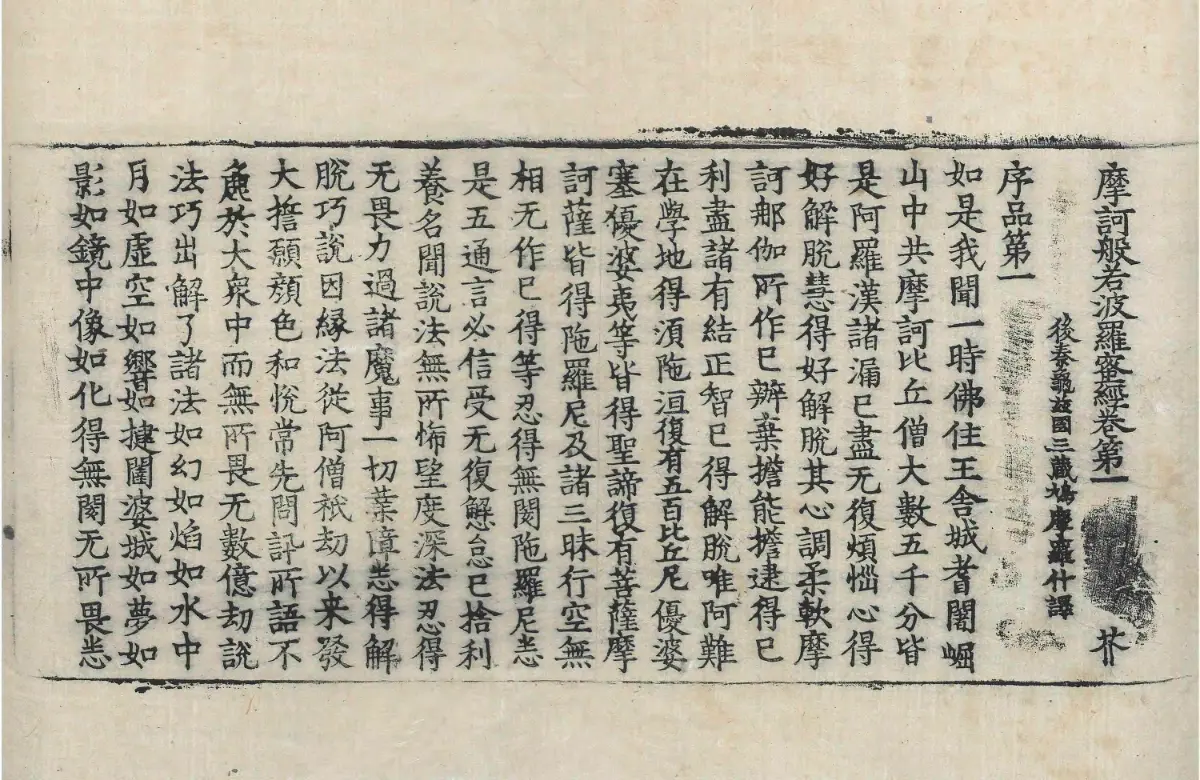 摩訶般若波羅蜜經卷第一 芥
後秦龜茲國三藏鳩摩羅什譯
序品第一
如是我聞一時佛住王舍城耆闍崛
山中共摩訶比丘僧大數五千分皆
是阿羅漢諸漏已盡无復煩惱心得
好解脫慧得好解脫其心調柔軟摩
訶那伽所作已辦棄擔能擔逮得已
利盡諸有結正智已得解脫唯阿難
在學地得湏陁洹復有五百比丘尼優婆
塞優婆夷等皆得聖諦復有菩薩摩
訶薩皆得陁羅尼及諸三昧行空無
相无作已得等忍得無閡陁羅尼悉
是五通言必信受无復懈怠已捨利
養名聞說法無所怖望度深法忍得
无畏力過諸魔事一切業障悉得解
脫巧說因緣法從阿僧祇劫以来發
大擔願顏色和悅常先問訊所語不
麁於大衆中而無所畏无數億劫說
法巧出解了諸法如幻如焰如水中
月如虛空如響如揵闥婆城如夢如
影如鏡中像如化得無閡无所畏悉